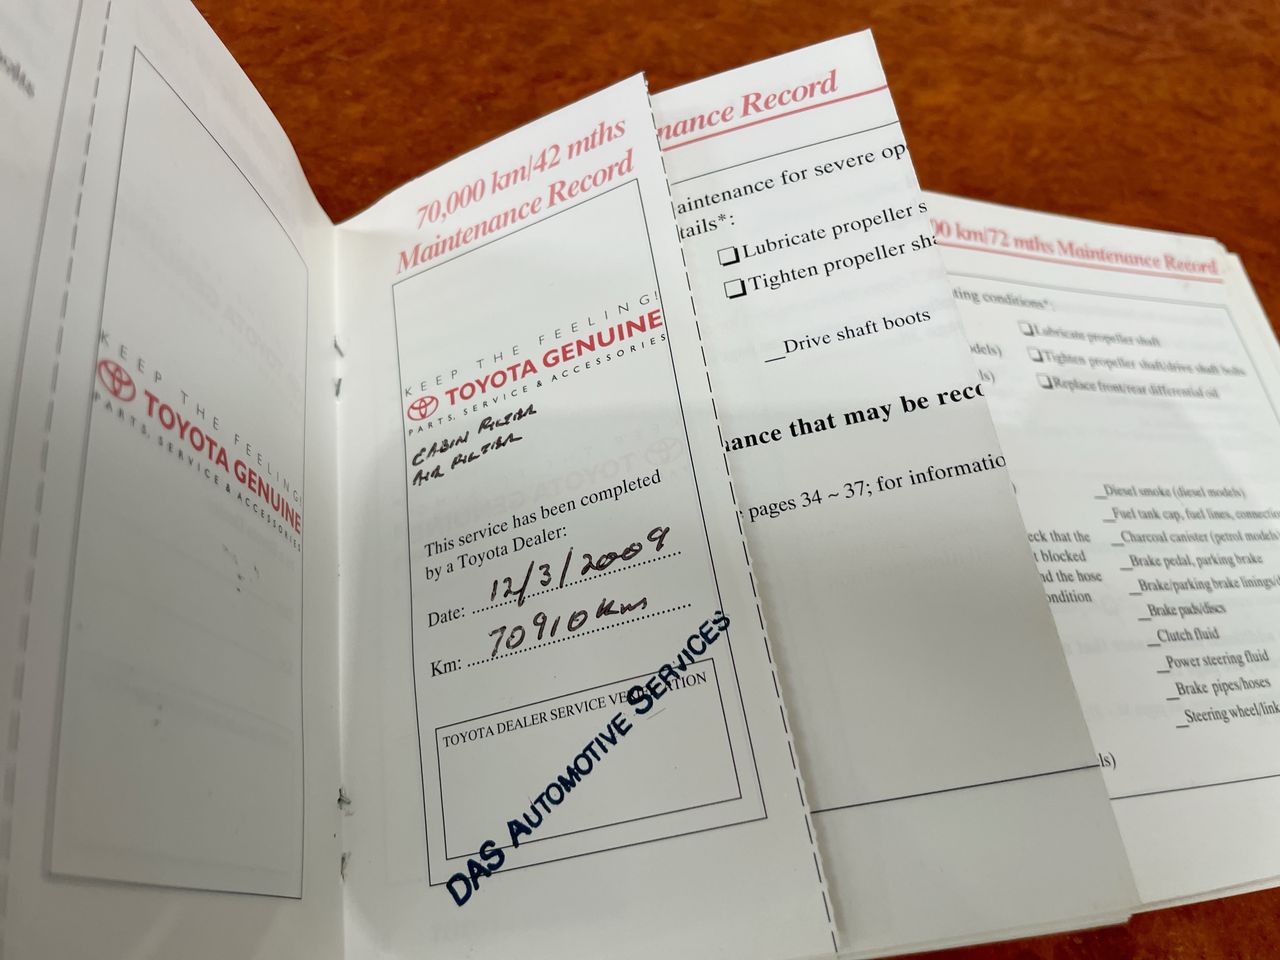 KEEP THE FEELING!
TOYOTA GENUINE
PARTS, SERVICE & ACCESSORIES
70,000 km/42 mths
Maintenance Record
KEEP THE FEELING!
TOYOTA GENUINE
PARTS, SERVICE & ACCESSORIES
CABIN FILTER
AIR FILTER
This service has been completed
by a Toyota Dealer:
Date: 12/3/2009
Km: 70910 Kms
TOYOTA DEALER SERVICE VERIFICATION
DAS AUTOMOTIVE SERVICES
nance Record
aintenance for severe op
tails*:
Lubricate propeller s
Tighten propeller sha
Drive shaft boots
ance that may be reco
pages 34 ~ 37; for informatio
00 km/72 mths Maintenance Record
ting conditions*:
Lubricate propeller shaft
Tighten propeller shaft/drive shaft bolts
Replace front/rear differential oil
dels)
ls)
Diesel smoke (diesel models)
Fuel tank cap, fuel lines, connectio
Charcoal canister (petrol models
Brake pedal, parking brake
Brake/parking brake linings/d
Brake pads/discs
Clutch fluid
Power steering fluid
Brake pipes/hoses
Steering wheel/link
eck that the
t blocked
nd the hose
ondition
ls)